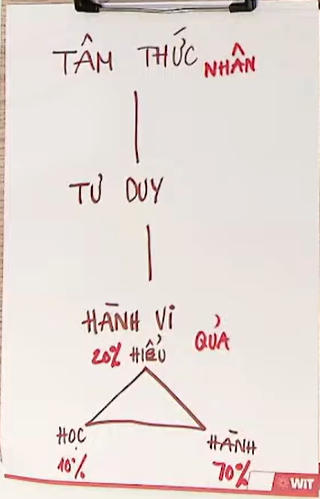 TÂM THỨC NHÂN
TƯ DUY
HÀNH VI
QUẢ
20% HIỂU
HỌC
HÀNH
10%
70%
WIT